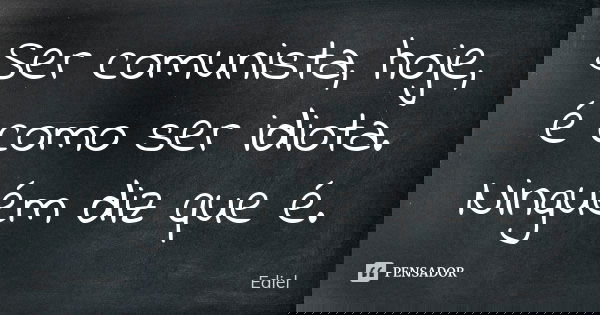 Ser comunista, hoje,
é como ser idiota.
Ninguém diz que é.
Ediel
PENSADOR